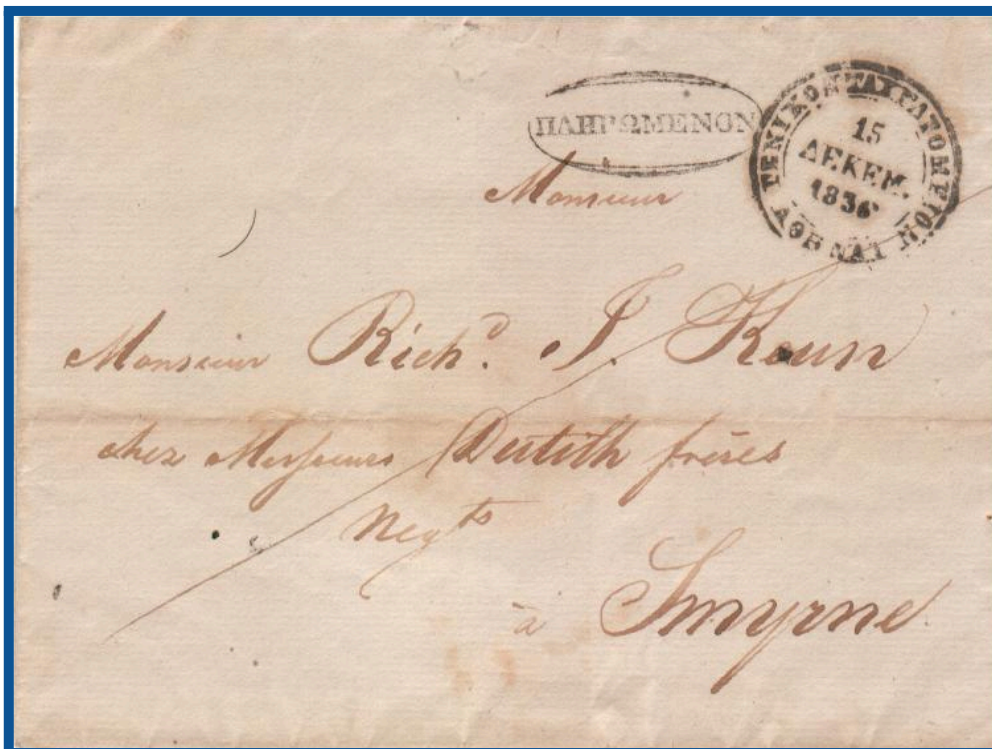 ΠΛΗΡΩΜΕΝΟΝ
ΓΕΝΙΚΟΝ ΤΑΧΥΔΡΟΜΕΙΟΝ
15
ΔΕΚΕΜ.
1836
ΑΘΗΝΑΙ
Monsieur
Monsieur Richd. J.
chez Messieurs Dutilh frères
Negts
à Smyrne